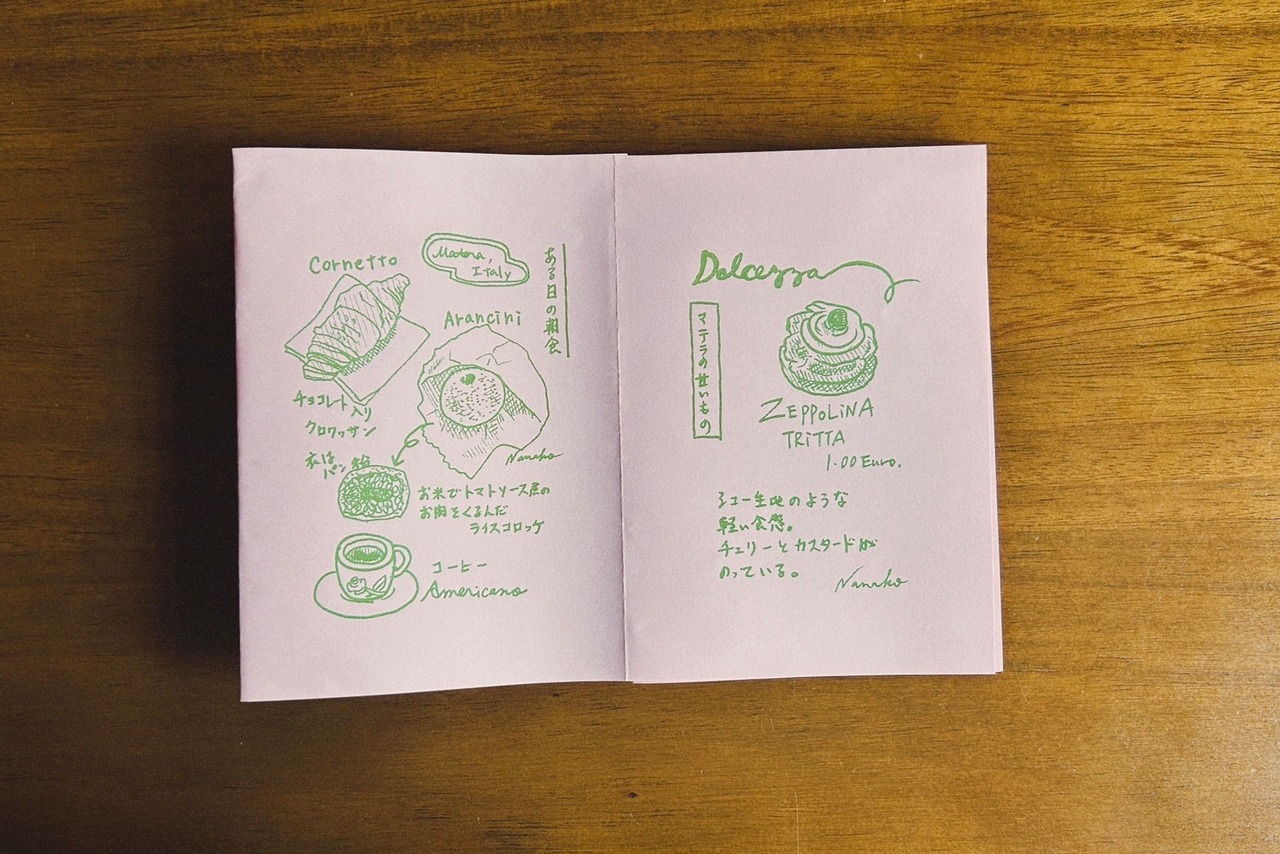 Cornetto
Matera,
Italy
ある日の朝食
Arancini
チョコレート入り
クロワッサン
衣は
パン粉
Nanako
お米でトマトソース煮の
お肉をくるんだ
ライスコロッケ
コーヒー
Americano
Dolcezza
マテラの甘いもの
ZEPPOLINA
TRITTA
1.00 Euro.
シュー生地のような
軽い食感。
チェリーとカスタードが
のっている。
Nanako